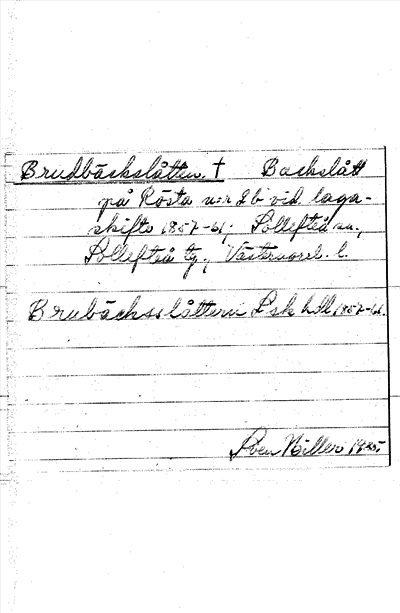 Brudbäckslåtten. † Backslått
på Rösta n:r 2b vid laga-
skifte 1857-61; Sollefteå sn.,
Sollefteå tg., Västernorrl. l.
Brubäcksslåttern Lsk hdl 1857-61.
Sven Miller